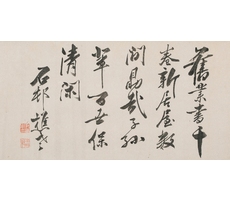 舊業書千
卷新居屋數
間勗哉子孫
輩可以保
清閑
石邨樵者